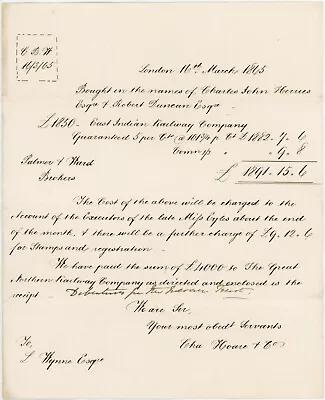 C. D. H
16/3/65
London 16th March 1865
Bought in the names of Charles John Herries
Esqre & Robert Duncan Esqre
£1850 – East Indian Railway Company
Guaranteed 5 per Cts @ 101¾ p Ct £1882 - 7 - 6
Comn ⅛ " 9 - 8
Palmer & Ward £ 1891 - 15 - 6
Brokers
The Cost of the above will be charged to the
Account of the Executors of the late Miss Eyles about the end
of the month, & there will be a further charge of £9. 12. 6
for Stamps and registration –
We have paid the sum of £4000 to The Great
Northern Railway Company as directed and enclosed is the
receipt – Debentures for the
We are Sir,
Your most obedt Servants
Chas Hoare & Co
To,
L Wynne Esqre